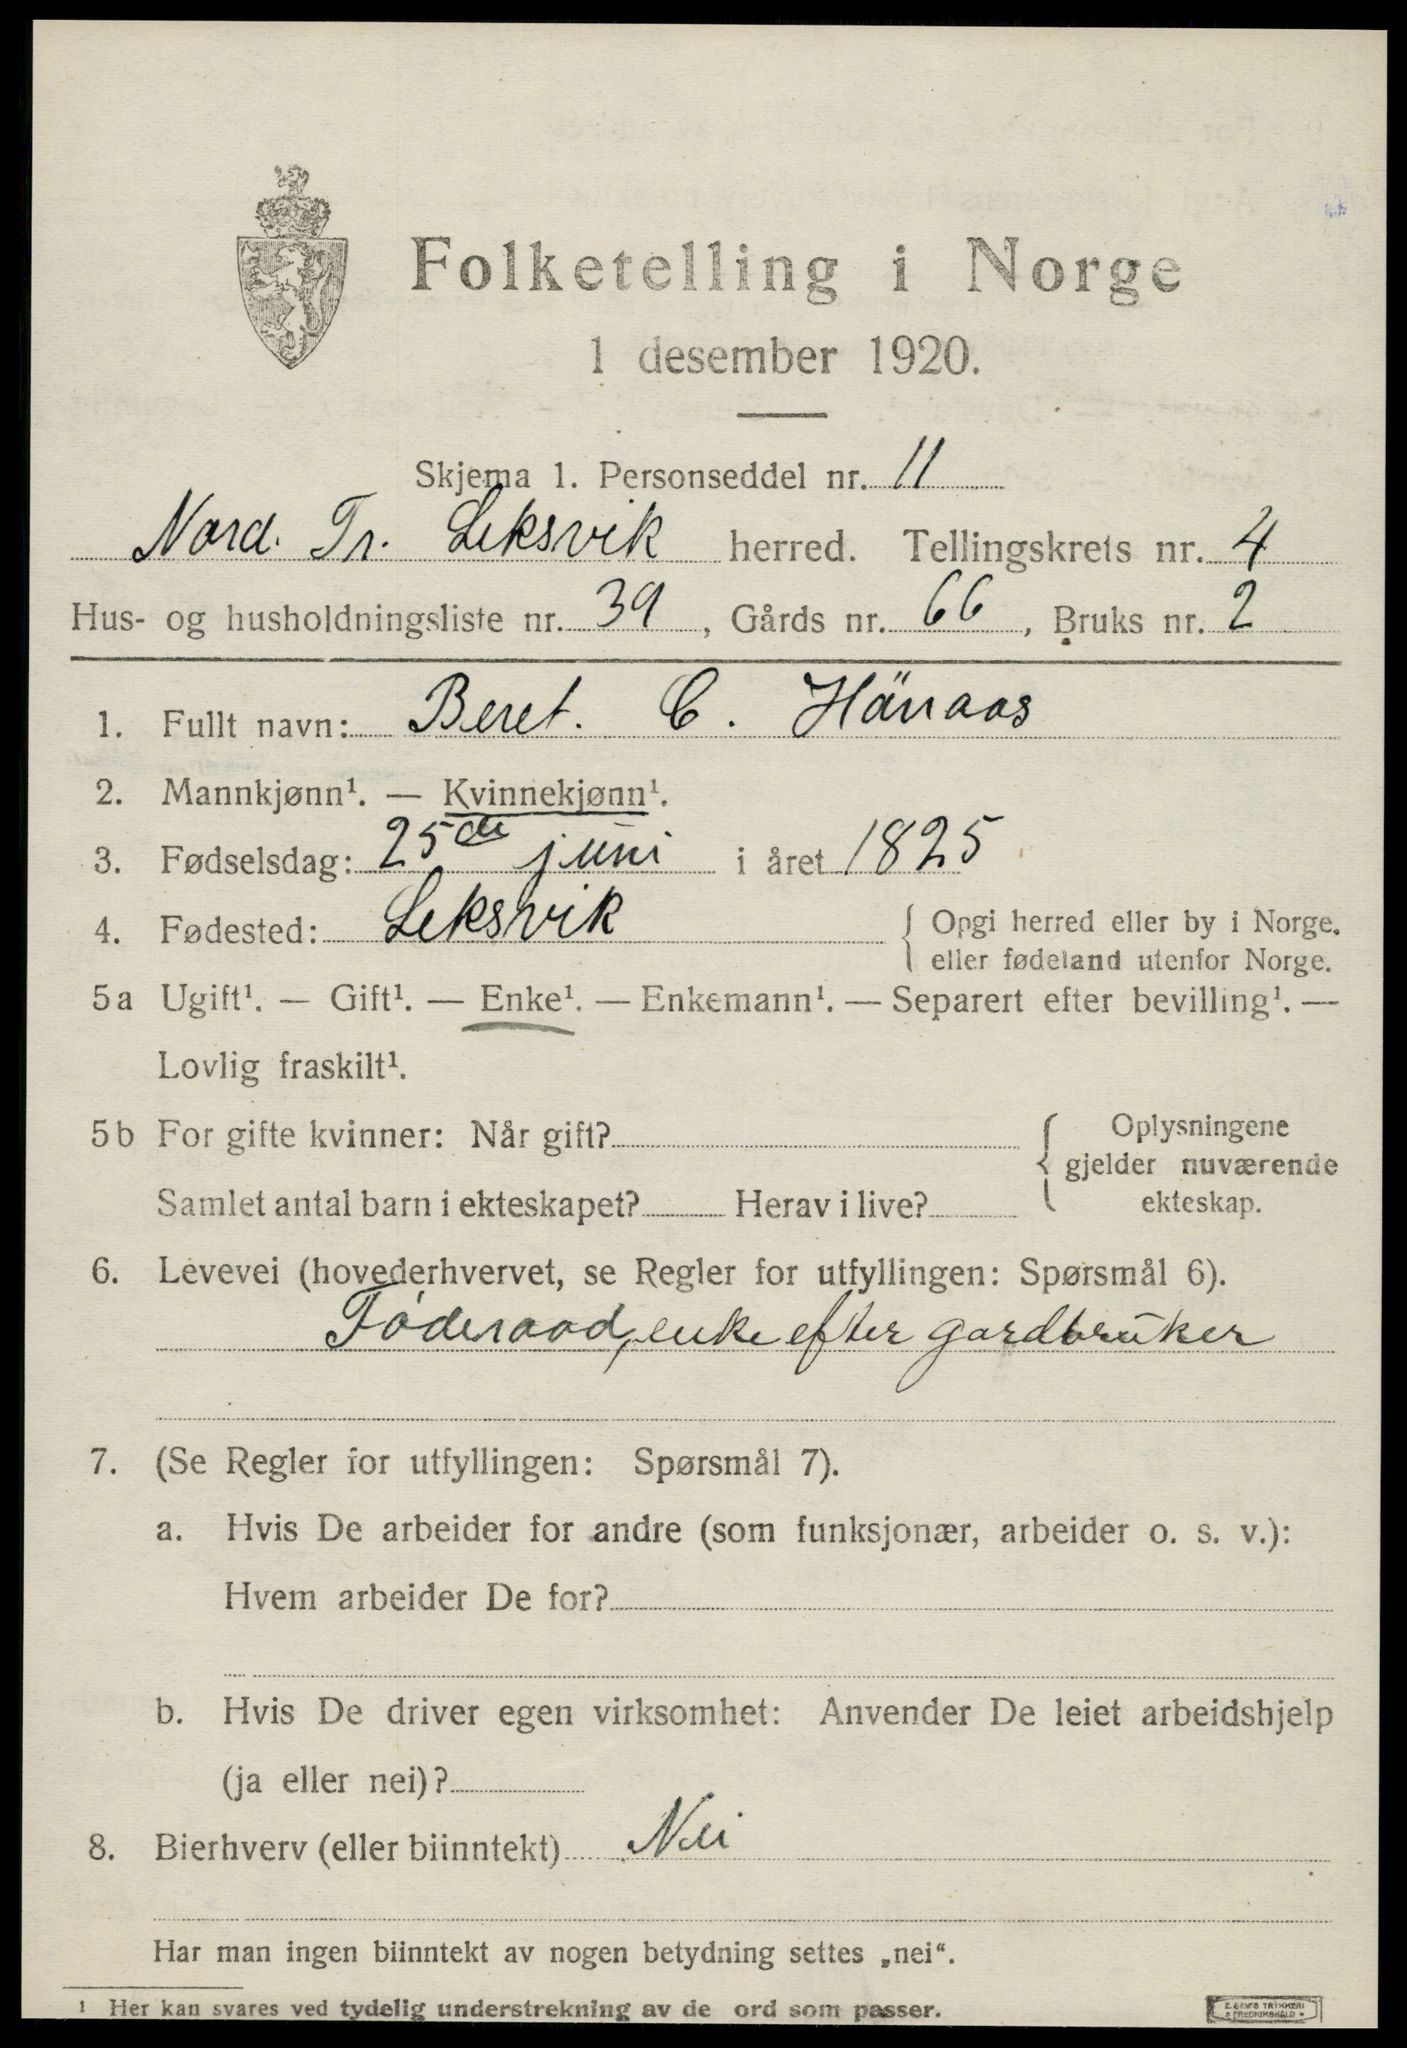 Folketelling i Norge
1 desember 1920.
Skjema 1. Personseddel nr. 11
Nord. Tr. Leksvik herred. Tellingskrets nr. 4
Hus- og husholdningsliste nr. 39, Gårds nr. 66, Bruks nr. 2
1. Fullt navn: Beret. C. Hänaas
2. Mannkjønn¹. — Kvinnekjønn¹.
3. Fødselsdag: 25de juni i året 1825
4. Fødested: Leksvik { Opgi herred eller by i Norge, eller fødeland utenfor Norge.
5a Ugift¹. — Gift¹. — Enke¹. — Enkemann¹. — Separert efter bevilling¹. —
Lovlig fraskilt¹.
5b For gifte kvinner: Når gift?
Samlet antal barn i ekteskapet? Herav i live?
{ Oplysningene
gjelder nuværende
ekteskap.
6. Levevei (hovederhvervet, se Regler for utfyllingen: Spørsmål 6).
Føderaad, enke efter gardbruker
7. (Se Regler for utfyllingen: Spørsmål 7).
a. Hvis De arbeider for andre (som funksjonær, arbeider o. s. v.):
Hvem arbeider De for?
b. Hvis De driver egen virksomhet: Anvender De leiet arbeidshjelp
(ja eller nei)?
8. Bierhverv (eller biinntekt) Nei
Har man ingen biinntekt av nogen betydning settes „nei“.
¹ Her kan svares ved tydelig understrekning av de ord som passer.
E. SEM'S TRYKKERI
FREDRIKSHALD